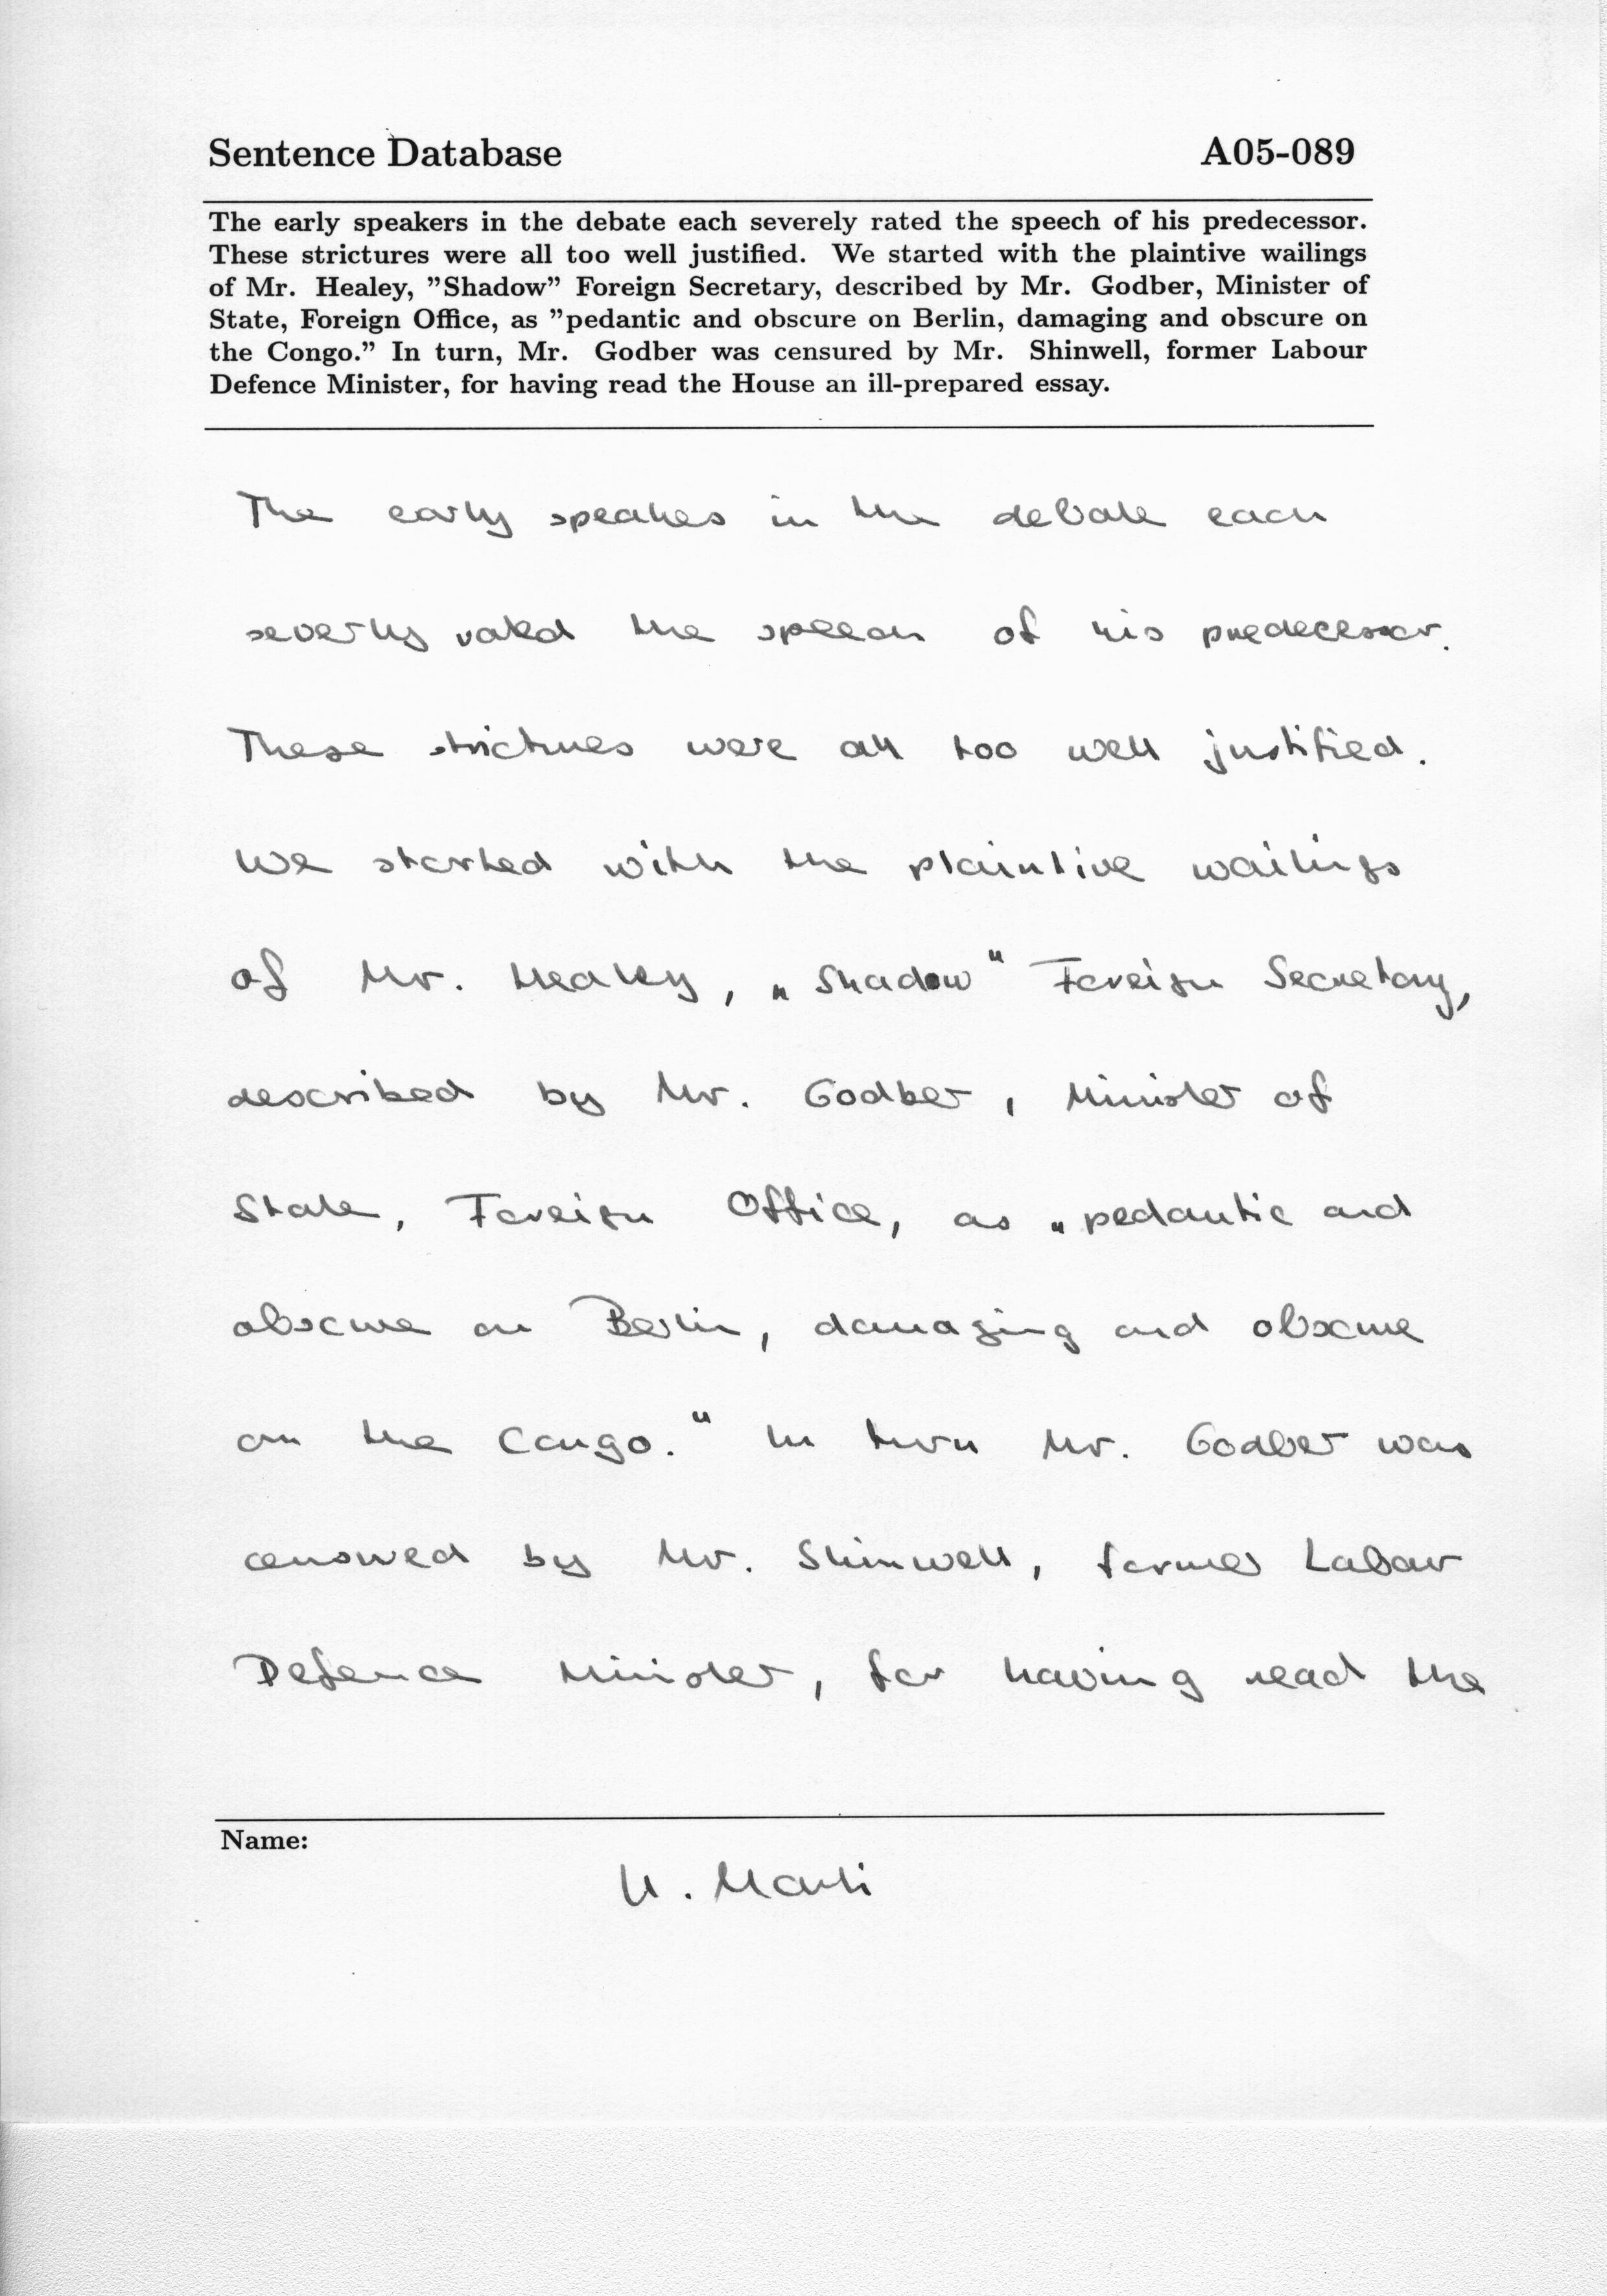 Sentence Database A05-089
The early speakers in the debate each severely rated the speech of his predecessor.
These strictures were all too well justified. We started with the plaintive wailings
of Mr. Healey, ”Shadow” Foreign Secretary, described by Mr. Godber, Minister of
State, Foreign Office, as ”pedantic and obscure on Berlin, damaging and obscure on
the Congo.” In turn, Mr. Godber was censured by Mr. Shinwell, former Labour
Defence Minister, for having read the House an ill-prepared essay.
The early speakers in the debate each
severly rated the speech of his predecessor.
These strictures were all too well justified.
We started with the plaintive wailings
of Mr. Healey, „Shadow“ Foreign Secretary,
described by Mr. Godber, Minister of
State, Foreign Office, as „pedantic and
obscure on Berlin, damaging and obscure
on the Congo.“ In turn Mr. Godber was
censured by Mr. Shinwell, former Labour
Defence Minister, for having read the
Name:
U. Marti